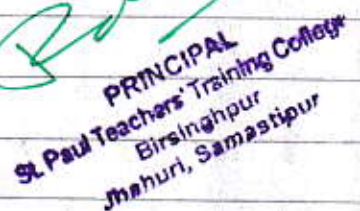 PRINCIPAL
St. Paul Teachers' Training College
Birsinghpur
Jhahuri, Samastipur